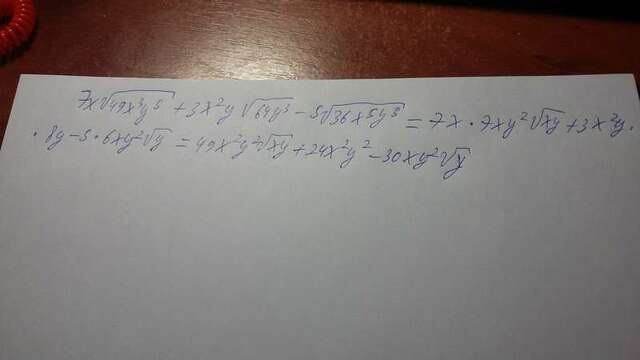 7x√49x³y⁵ + 3x²y√64y³ - 5√36x⁵y⁵ = 7x · 7xy²√xy + 3x²y ·
· 8y - 5 · 6xy²√y = 49x²y²√xy + 24x²y² - 30xy²√y